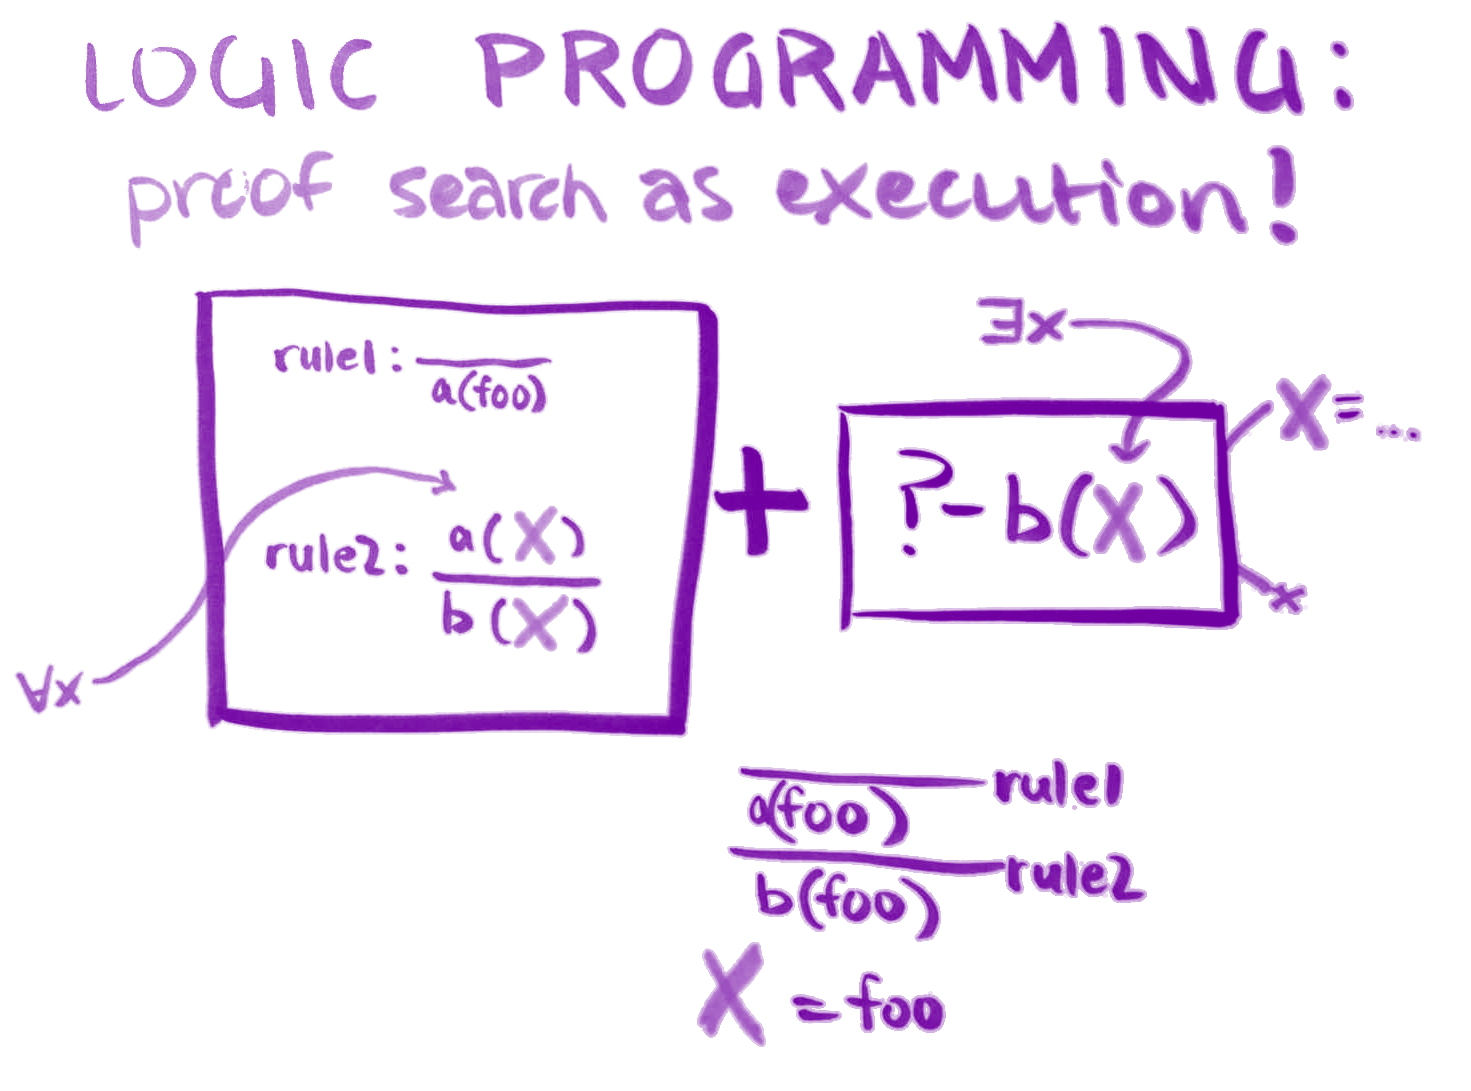 LOGIC PROGRAMMING:
proof search as execution!
rule1: a(foo)
rule2: a(X)
b(X)
∀x
+
∃x
?- b(X)
X = ...
x
a(foo) rule1
b(foo) rule2
X = foo